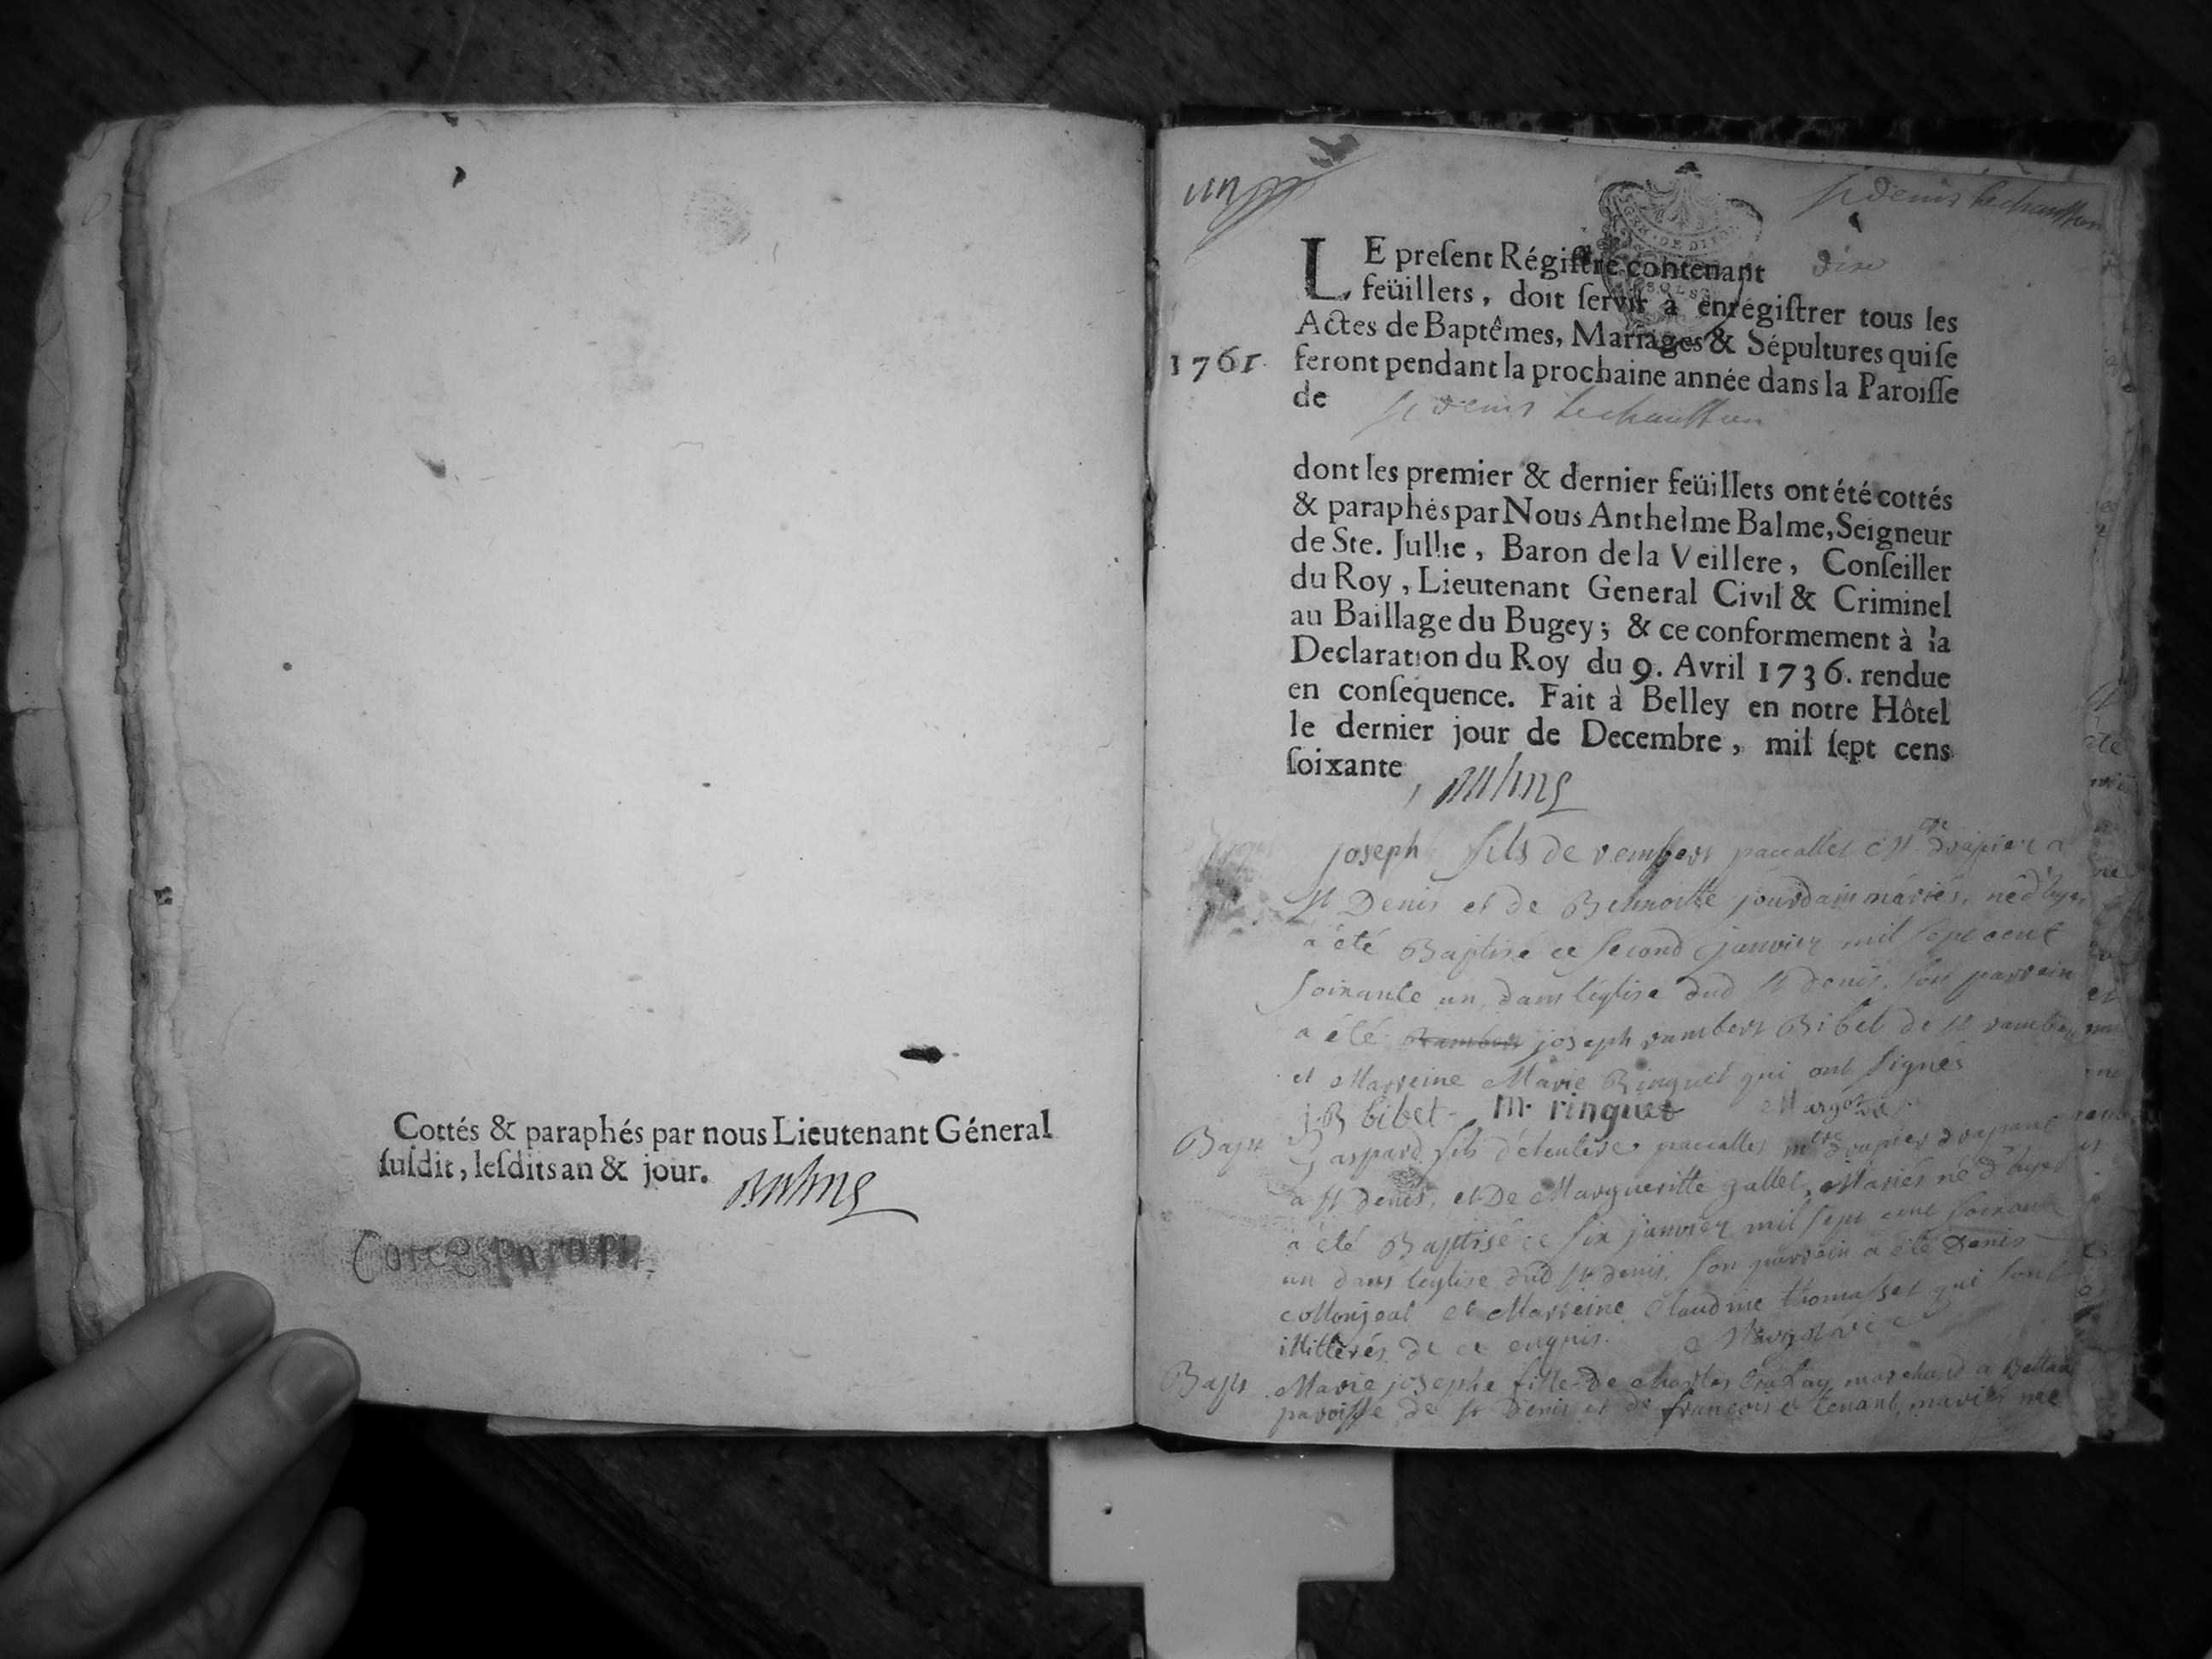 Cottés & paraphés par nous Lieutenant Géneral
susdit, lesdits an & jour.
Balme
un
st denis le chausson
LE present Régistre contenant dix
feüillets, doit servir à enrégistrer tous les
Actes de Baptêmes, Mariages & Sépultures qui se
1761. feront pendant la prochaine année dans la Paroisse
de st denis le chausson
dont les premier & dernier feüillets ont été cottés
& paraphés par Nous Anthelme Balme, Seigneur
de Ste. Jullie, Baron de la Veillere, Conseiller
du Roy, Lieutenant General Civil & Criminel
au Baillage du Bugey; & ce conformement à la
Declaration du Roy du 9. Avril 1736. rendue
en consequence. Fait à Belley en notre Hôtel
le dernier jour de Decembre, mil sept cens
soixante, Balme
joseph fils de rembert paccallet drapier a
st Denis et de Benoitte jourdain mariés, né d'hyer
a été Baptisé ce second janvier mil sept cent
soixante un, dans l'église dud st denis, son parrein
a été joseph rambert Bibet de st rambert
et Marreine Marie Ringuet qui ont signés
J.B bibet M. ringuet
Bapt Gaspard fils paccallet drapier
a st denis, et De Margueritte gallet, Mariés né d'hyer
a été Baptisé ce six janvier mil sept cent soixante
un dans l'eglise dud st denis, son parrein a été Denis
collonjeat et Marreine Claudine thomasset qui sont
illittérés de ce enquis.
Bapt Marie josephe fille de charles marchand a
paroisse de st Denis et de françoise tenant, mariés née